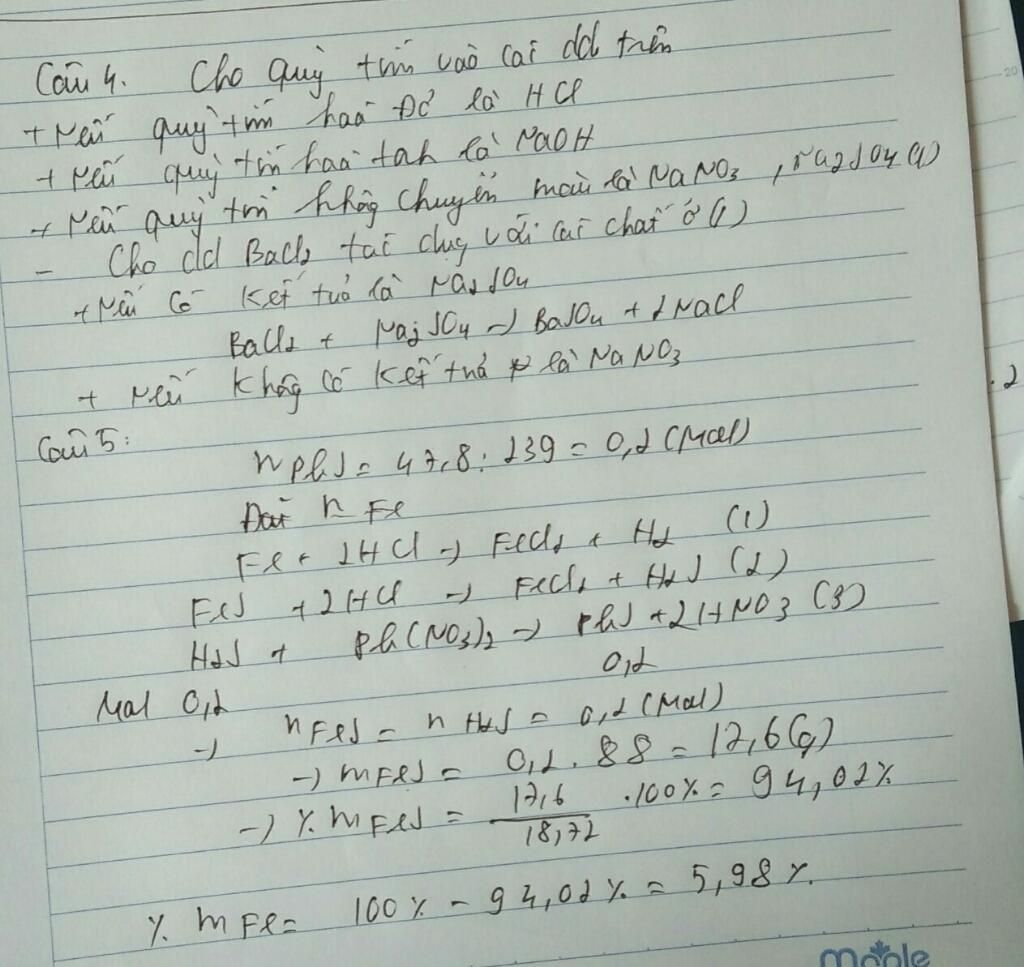 Câu 4. Cho quỳ tím vào các dd trên
+ Nếu quỳ tím hoá Đỏ là HCl
+ Nếu quỳ tím hoá xanh là NaOH
+ Nếu quỳ tím không chuyển màu là NaNO3, Na2SO4 (1)
- Cho dd BaCl2 tác dụng với các chất ở (1)
+ Nếu có kết tủa là Na2SO4
BaCl2 + Na2SO4 → BaSO4 + 2NaCl
+ Nếu không có kết tủa là NaNO3
Câu 5:
nPbS = 47,8 : 239 = 0,2 (Mol)
Đặt n Fe
Fe + 2HCl → FeCl2 + H2 (1)
FeS + 2HCl → FeCl2 + H2S (2)
H2S + Pb(NO3)2 → PbS + 2HNO3 (3)
Mol 0,2 0,2
→ nFeS = nH2S = 0,2 (Mol)
→ mFeS = 0,2 . 88 = 17,6 (g)
→ % mFeS = 17,6 / 18,72 . 100% = 94,02%
% mFe = 100% - 94,02% = 5,98%
maple
20
.2